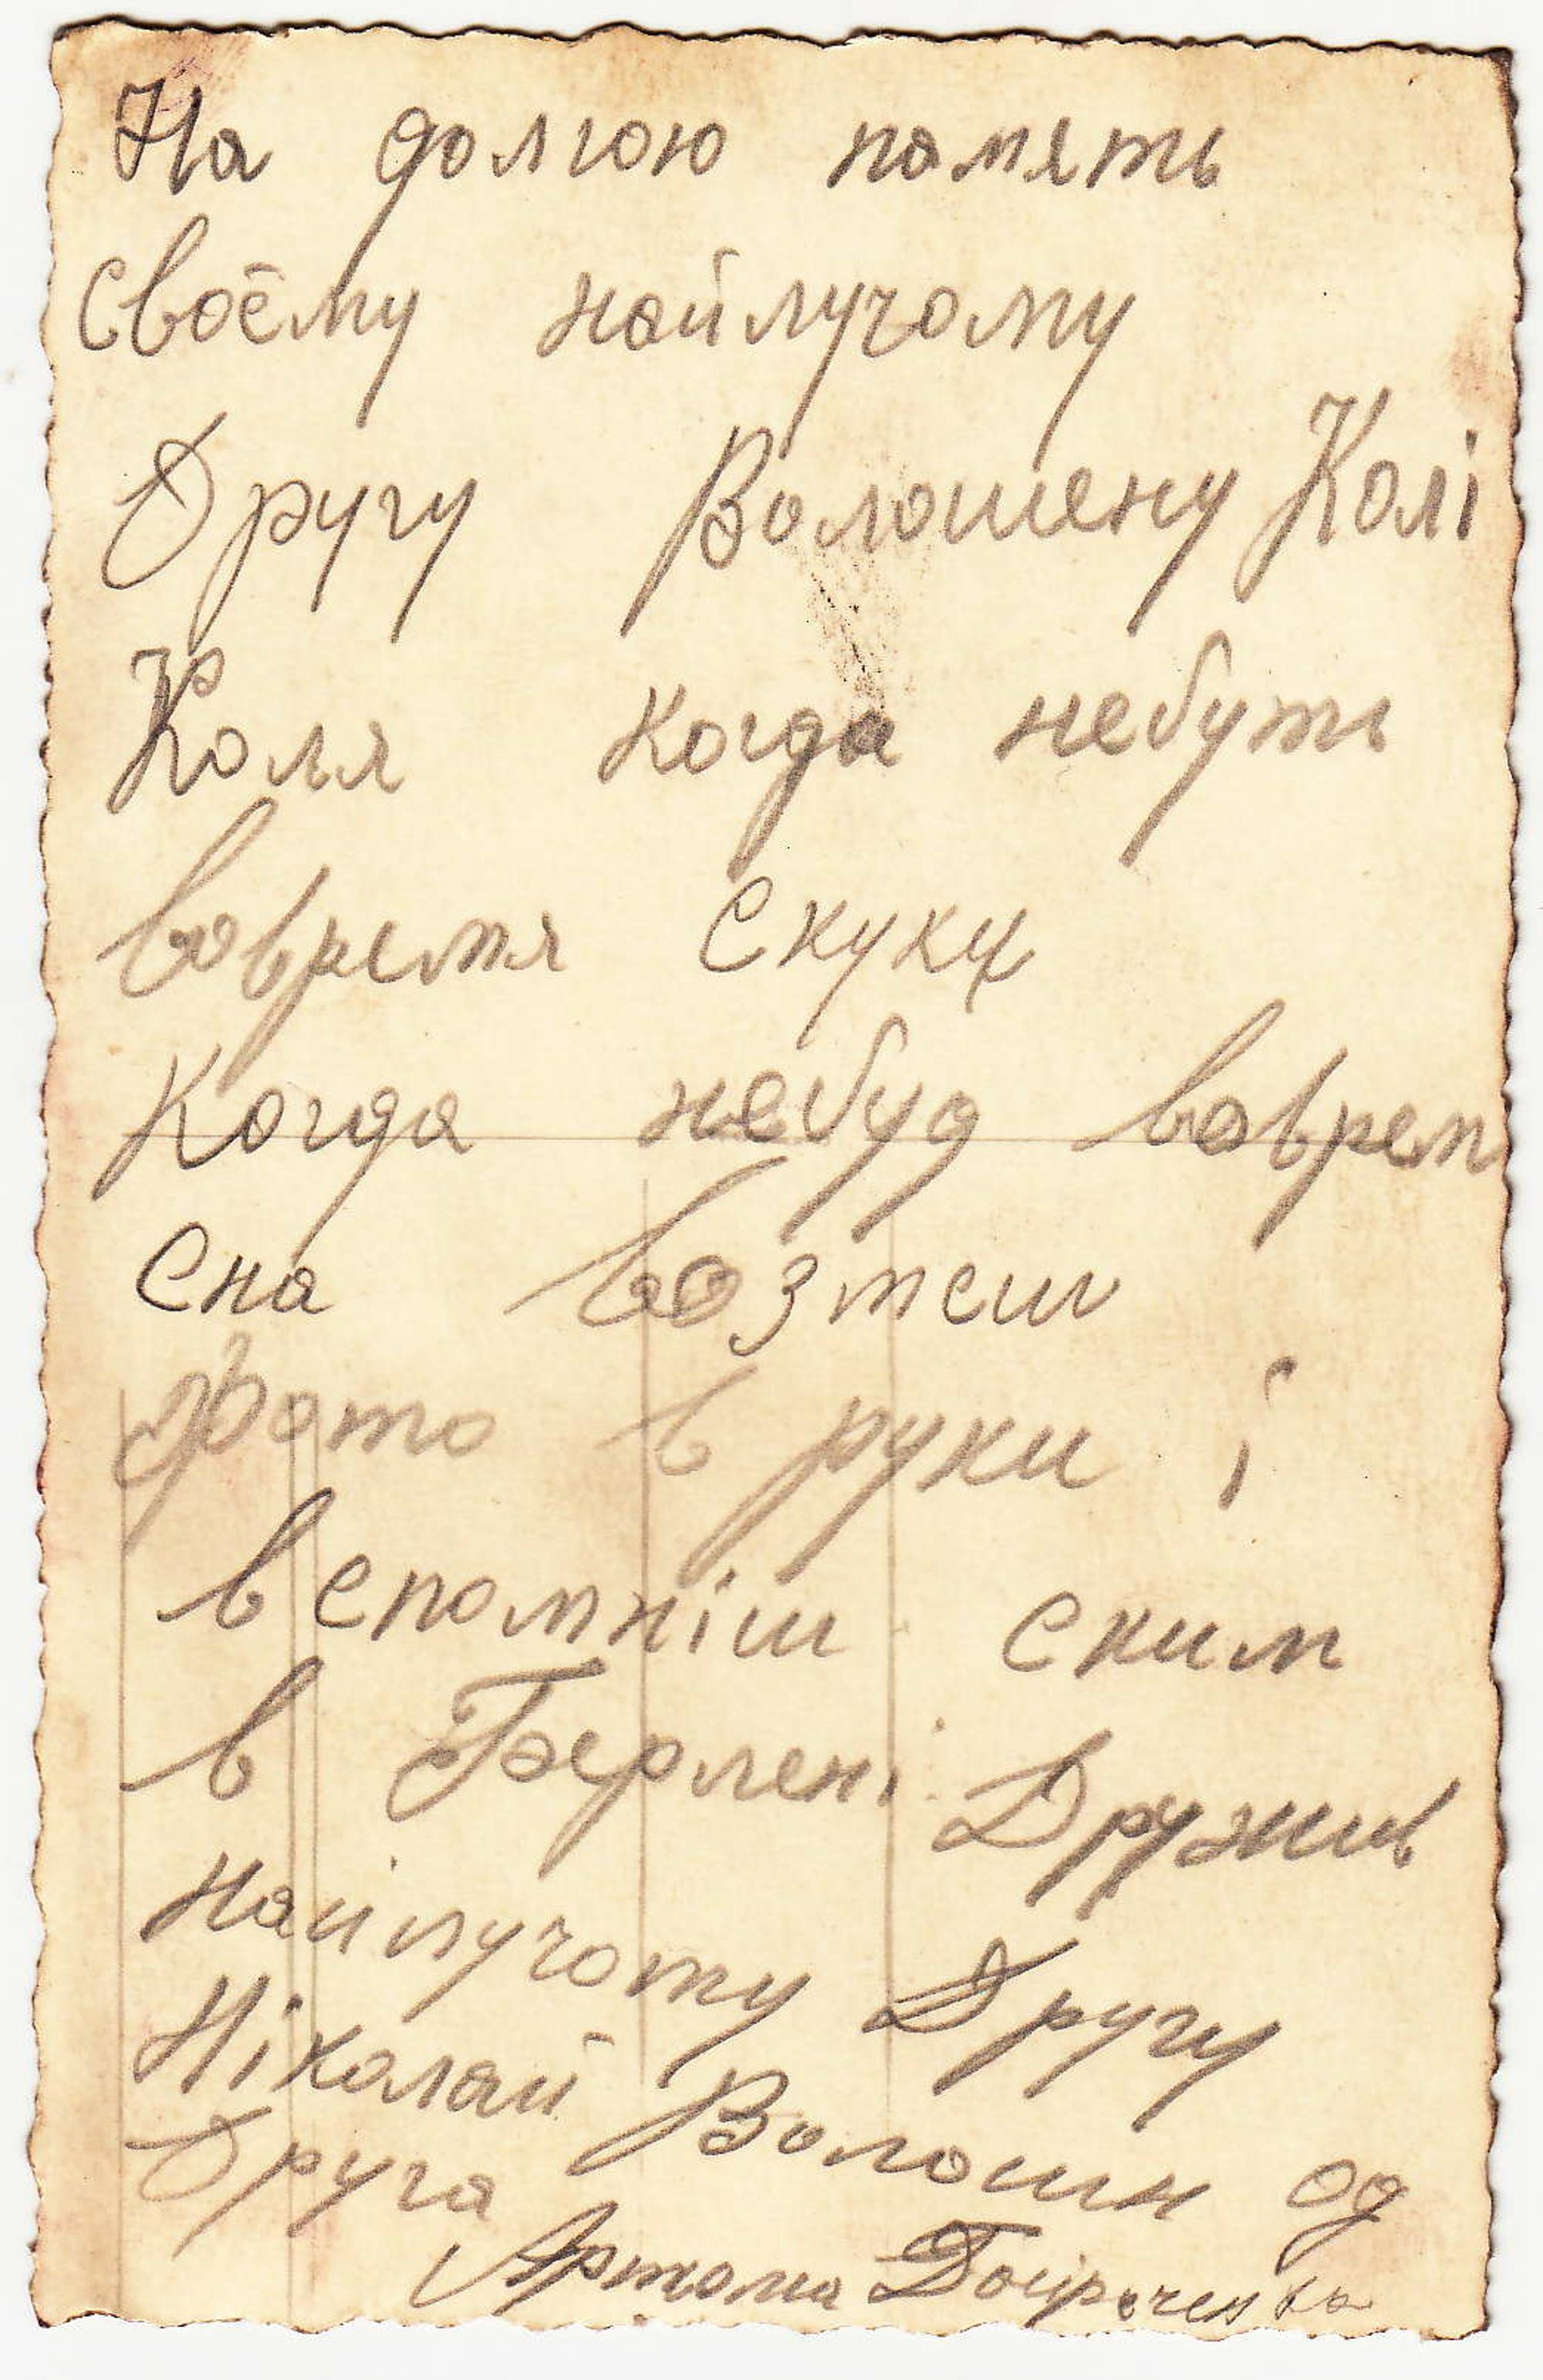 На долгою память
своёму найлучому
Другу Волошену Колі
Коля когда небуть
вовремя Скуки
Когда небуд воврем
Сна возмеш
фото в руки і
в спомніш ским
в Берлені Дружив
найлучому Другу
Ніколай Волошин од
Друга
Артома